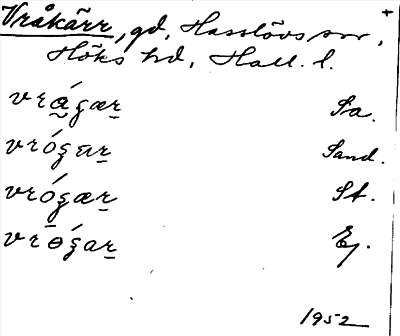 Vråkärr, gd, Hasslövs sn, +
Höks hd, Hall. l.
vrá̰gær̲ Sa.
vróʒær̲ Sand.
vróʒær̲ St.
vrɵ̄́ʒar̲ Ej.
1952